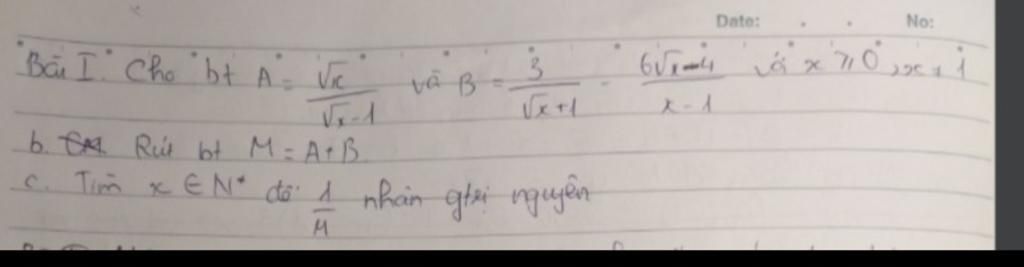 Date: . . No:
Bài I. Cho bt A = √x / (√x - 1) và B = 3 / (√x + 1) - (6√x - 4) / (x - 1) với x ≥ 0, x ≠ 1
b. Rút bt M = A + B
c. Tìm x ∈ N* để 1/M nhận gtrị nguyên